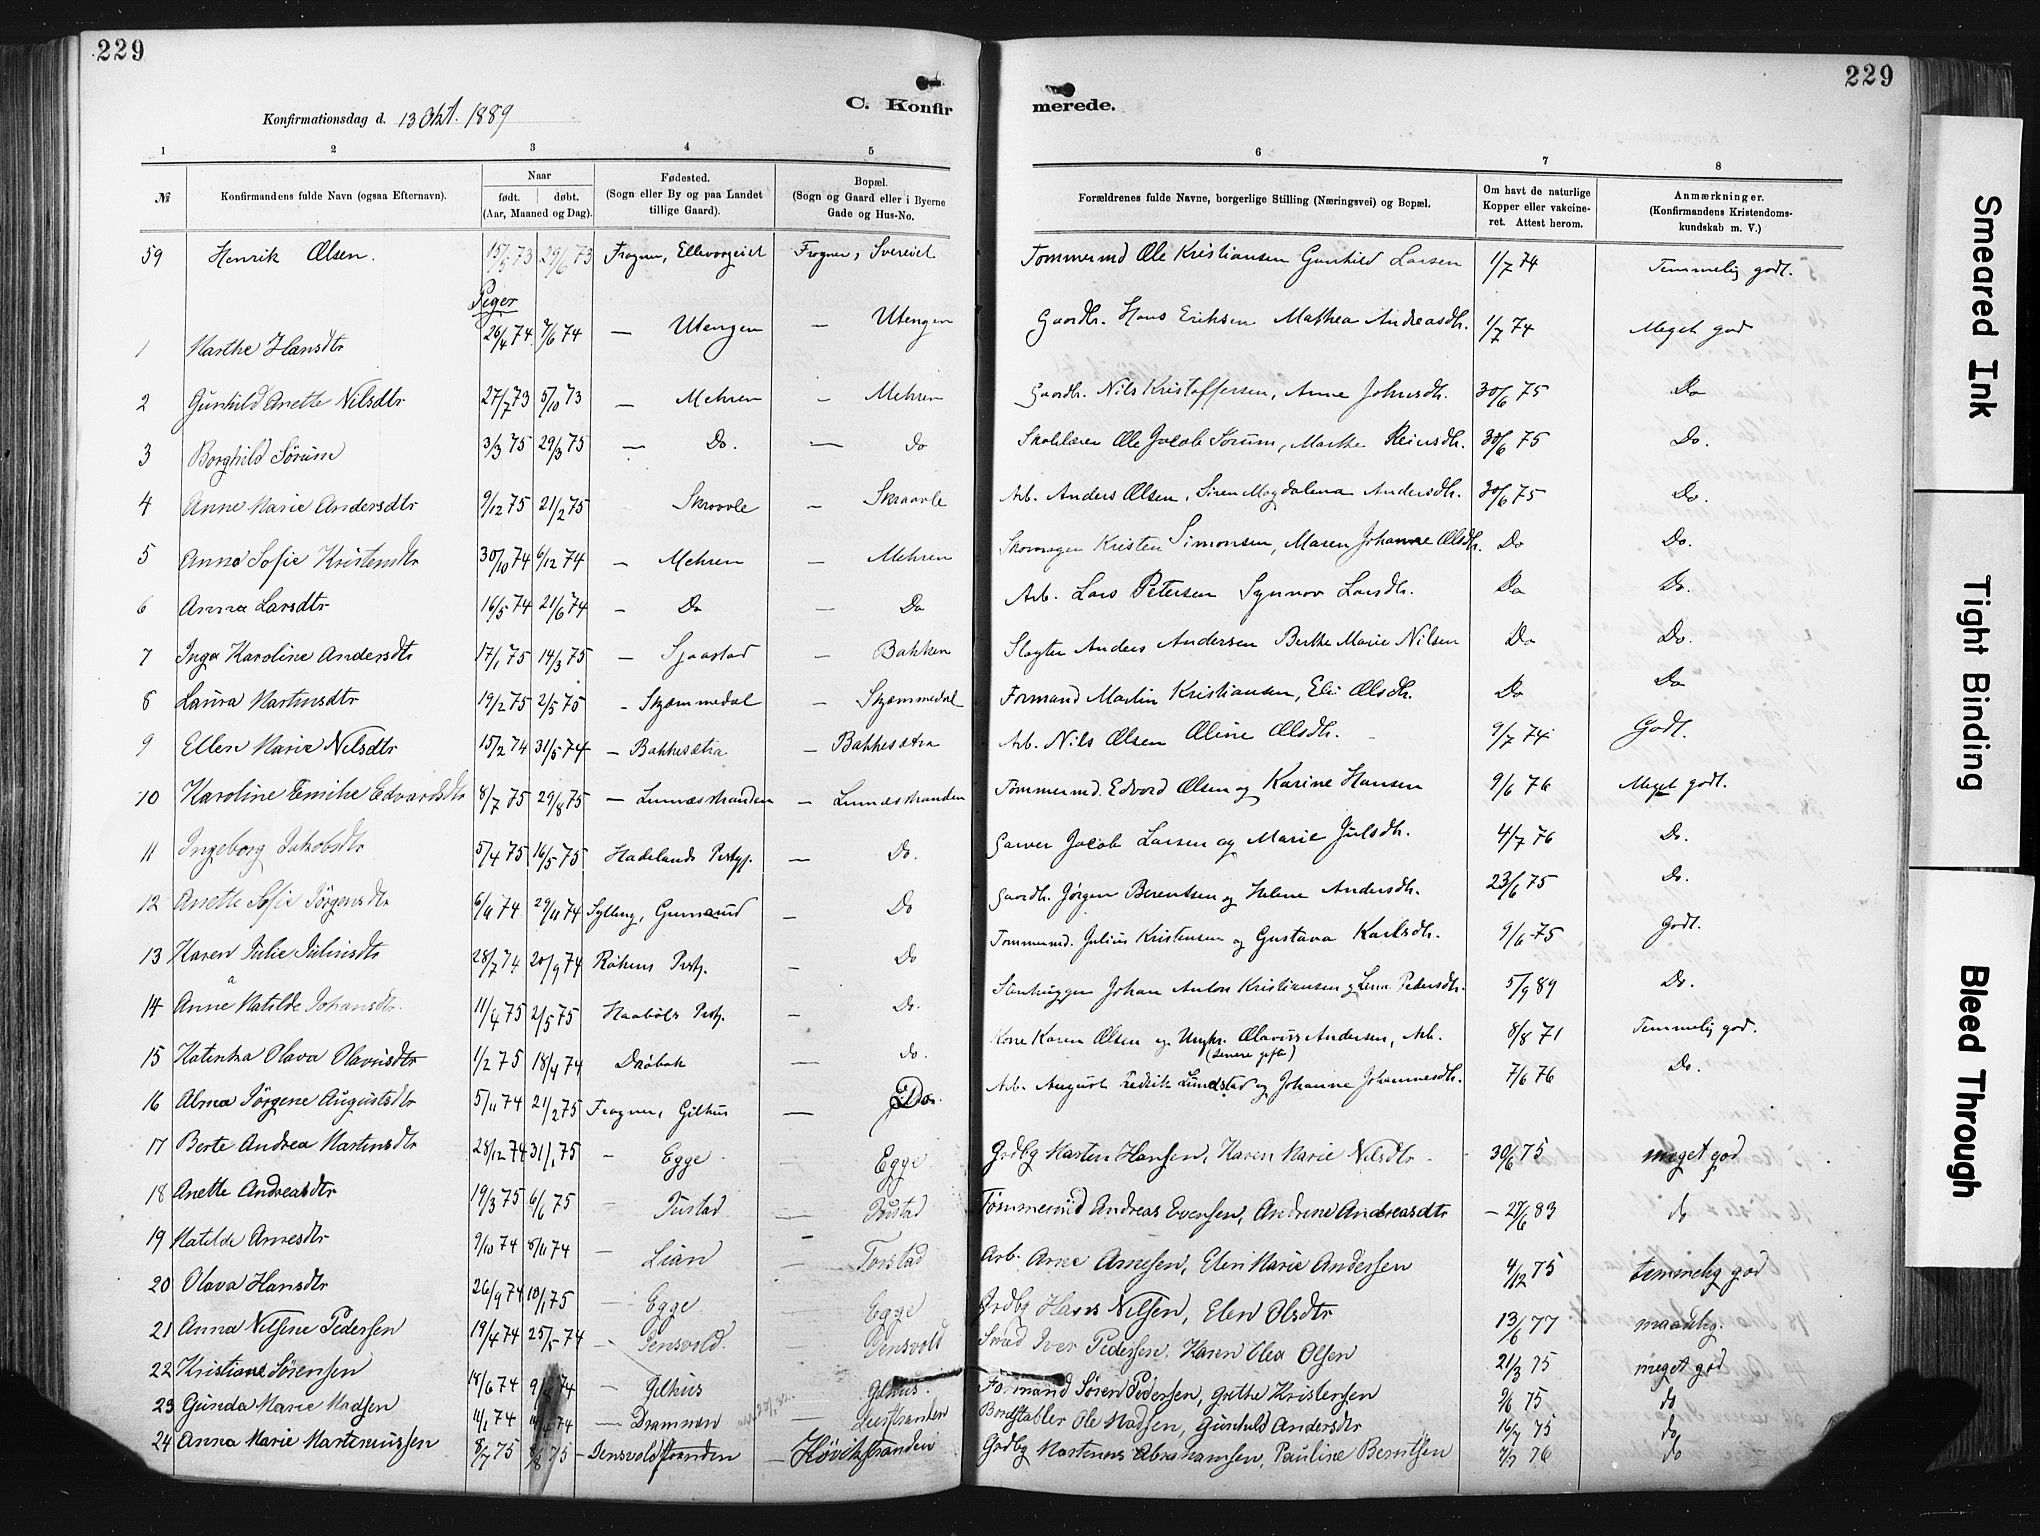 229
229
C. Konfir merede.
Konfirmationsdag d. 13 Okt. 1889
1 2 3 4 5 6 7 8
№
Konfirmandens fulde Navn (ogsaa Efternavn).
Naar
født. døbt.
(Aar, Maaned og Dag).
Fødested.
(Sogn eller By og paa Landet
tillige Gaard).
Bopæl.
(Sogn og Gaard eller i Byerne
Gade og Hus-No.
Forældrenes fulde Navne, borgerlige Stilling (Næringsvei) og Bopæl.
Om havt de naturlige
Kopper eller vakcine-
ret. Attest herom.
Anmærkninger.
(Konfirmandens Kristendoms-
kundskab m. V.)
59 Henrik Olsen. 15/5 73 29/6 73 Frogner, Frogner, Tømmermd Ole Kristiansen Gunhild Larsen 1/7 74 Temmelig godt.
Piger
1 Marthe Hansdtr 26/4 74 7/6 74 — Utengen — Utengen Gaardbr. Hans Eriksen Mathea Andreasdtr. 1/7 74 Meget god
2 Gunhild Anette Nilsdtr 27/7 73 5/10 73 — Mehren — Mehren Gaardbr. Nils Kristoffersen, Anne Johnsdtr. 30/6 75 Do
3 Borghild Sørum 3/3 75 29/3 75 — Do. — do Skolelærer Ole Jacob Sørum, Marthe 30/6 75 Do.
4 Anne Marie Andersdtr 9/12 75 21/2 75 Skraavle — Skraavle Arb. Anders Olsen, Siren Magdalena Andersdtr. 30/6 75 Do.
5 Anna Sofie Kristensdtr 30/10 74 6/12 74 — Mehren — Mehren Skomager Kristen Simonsen, Maren Johanne Olsdtr. Do Do.
6 Anna Larsdtr 16/5 74 21/6 74 — Do — Do Arb. Lars Petersen Synnøv Larsdtr. Do Do.
7 Inga Karoline Andersdtr 17/1 75 14/3 75 — Sjaastad — Bakken Slagter Anders Andersen Berthe Marie Nilsen Do Do.
8 Laura Martinsdtr 19/2 75 2/5 75 — Skjæmmedal — Skjæmmedal Formand Martin Kristiansen, Eli Olsdtr. Do Do
9 Ellen Marie Nilsdtr 15/2 74 31/5 74 — Bakkesætra — Bakkesætra Arb. Nils Olsen Oline Olsdtr. 9/7 74 Godt.
10 Karoline Emilie Edvardsdtr 8/7 75 29/8 75 — Linnæsstranden — Linnæsstranden Tømmermd. Edvard Olsen og Karine Hansen 9/6 76 Meget godt.
11 Ingeborg Jakobsdtr 5/4 75 16/5 75 Hadelands Prstgj. — Do. Garver Jacob Larsen og Marie Julsdtr. 4/7 76 Do.
12 Anette Sofie Jørgensdtr 6/9 74 29/11 74 Sylling, — Do Gaardbr. Jørgen Berentsen og Helene Andersdtr. 23/6 75 Do.
13 Karen Julie Juliusdtr 28/7 74 20/9 74 Røkens Prstgj. — Do Tømmermd. Julius Kristensen og Gustava Karlsdtr. 9/6 75 Godt.
14 Anna Matilde Johansdtr. 11/4 75 2/5 75 Haabøls Prstgj. — Do. Stenhugger Johan Anton Kristiansen og Lina Petersdtr. 5/9 89 Do.
15 Katinka Olava Olavusdtr 1/2 75 18/4 74 Drøbak — do. Kone Karen Olsen og Ungkr. Olavus Andersen, Arb. 8/8 71 Temmelig god.
(senere gifte)
16 Alma Jørgene Augustsdtr 5/11 74 21/2 75 Frogner, Gilhus — Do. Arb. August Fredrik Lundstad og Johanne Johannesdtr. 7/6 76 Do.
17 Berte Andrea Martensdtr 28/12 74 31/1 75 — Egge — Egge Grdbg Marten Hansen, Karen Marie Nilsdtr 30/6 75 meget god
18 Anette Andreasdtr 19/3 75 6/6 75 — Justad — Justad Tømmermd Andreas Evensen, Andrine Andreasdtr — 27/6 83 do
19 Matilde Arnesdtr 9/10 74 8/11 74 — Lian — Torstad Arb. Arne Arnesen, Elen Marie Andersen 4/12 75 temmelig god
20 Olava Hansdtr 26/9 74 10/1 75 — Egge — Egge Grdbg Hans Nilsen, Elen Olsdtr 13/6 77 maadelig.
21 Anna Nilsine Pedersen 19/4 74 25/5 74 — Jensvold — Jensvold Smed Iver Pedersen, Karen Olea Olsen 21/3 75 meget god
22 Kristiane Sørensen 18/6 74 — Gilhus — Gilhus. Formand Søren Pedersen, Grethe Kristensen 9/6 75 do
23 Gunda Marie Madsen 11/1 74 — Drammen — Bordstabler Ole Madsen, Gunhild Andersdtr 16/7 75 do
24 Anna Marie Martinussen 8/7 75 8/8 75 — Jensvoldstranden — Høvikstranden Grdbg Martinus Abrahamsen, Pauline Berntsen 7/7 76 do
Smeared Ink
Tight Binding
Bleed Through